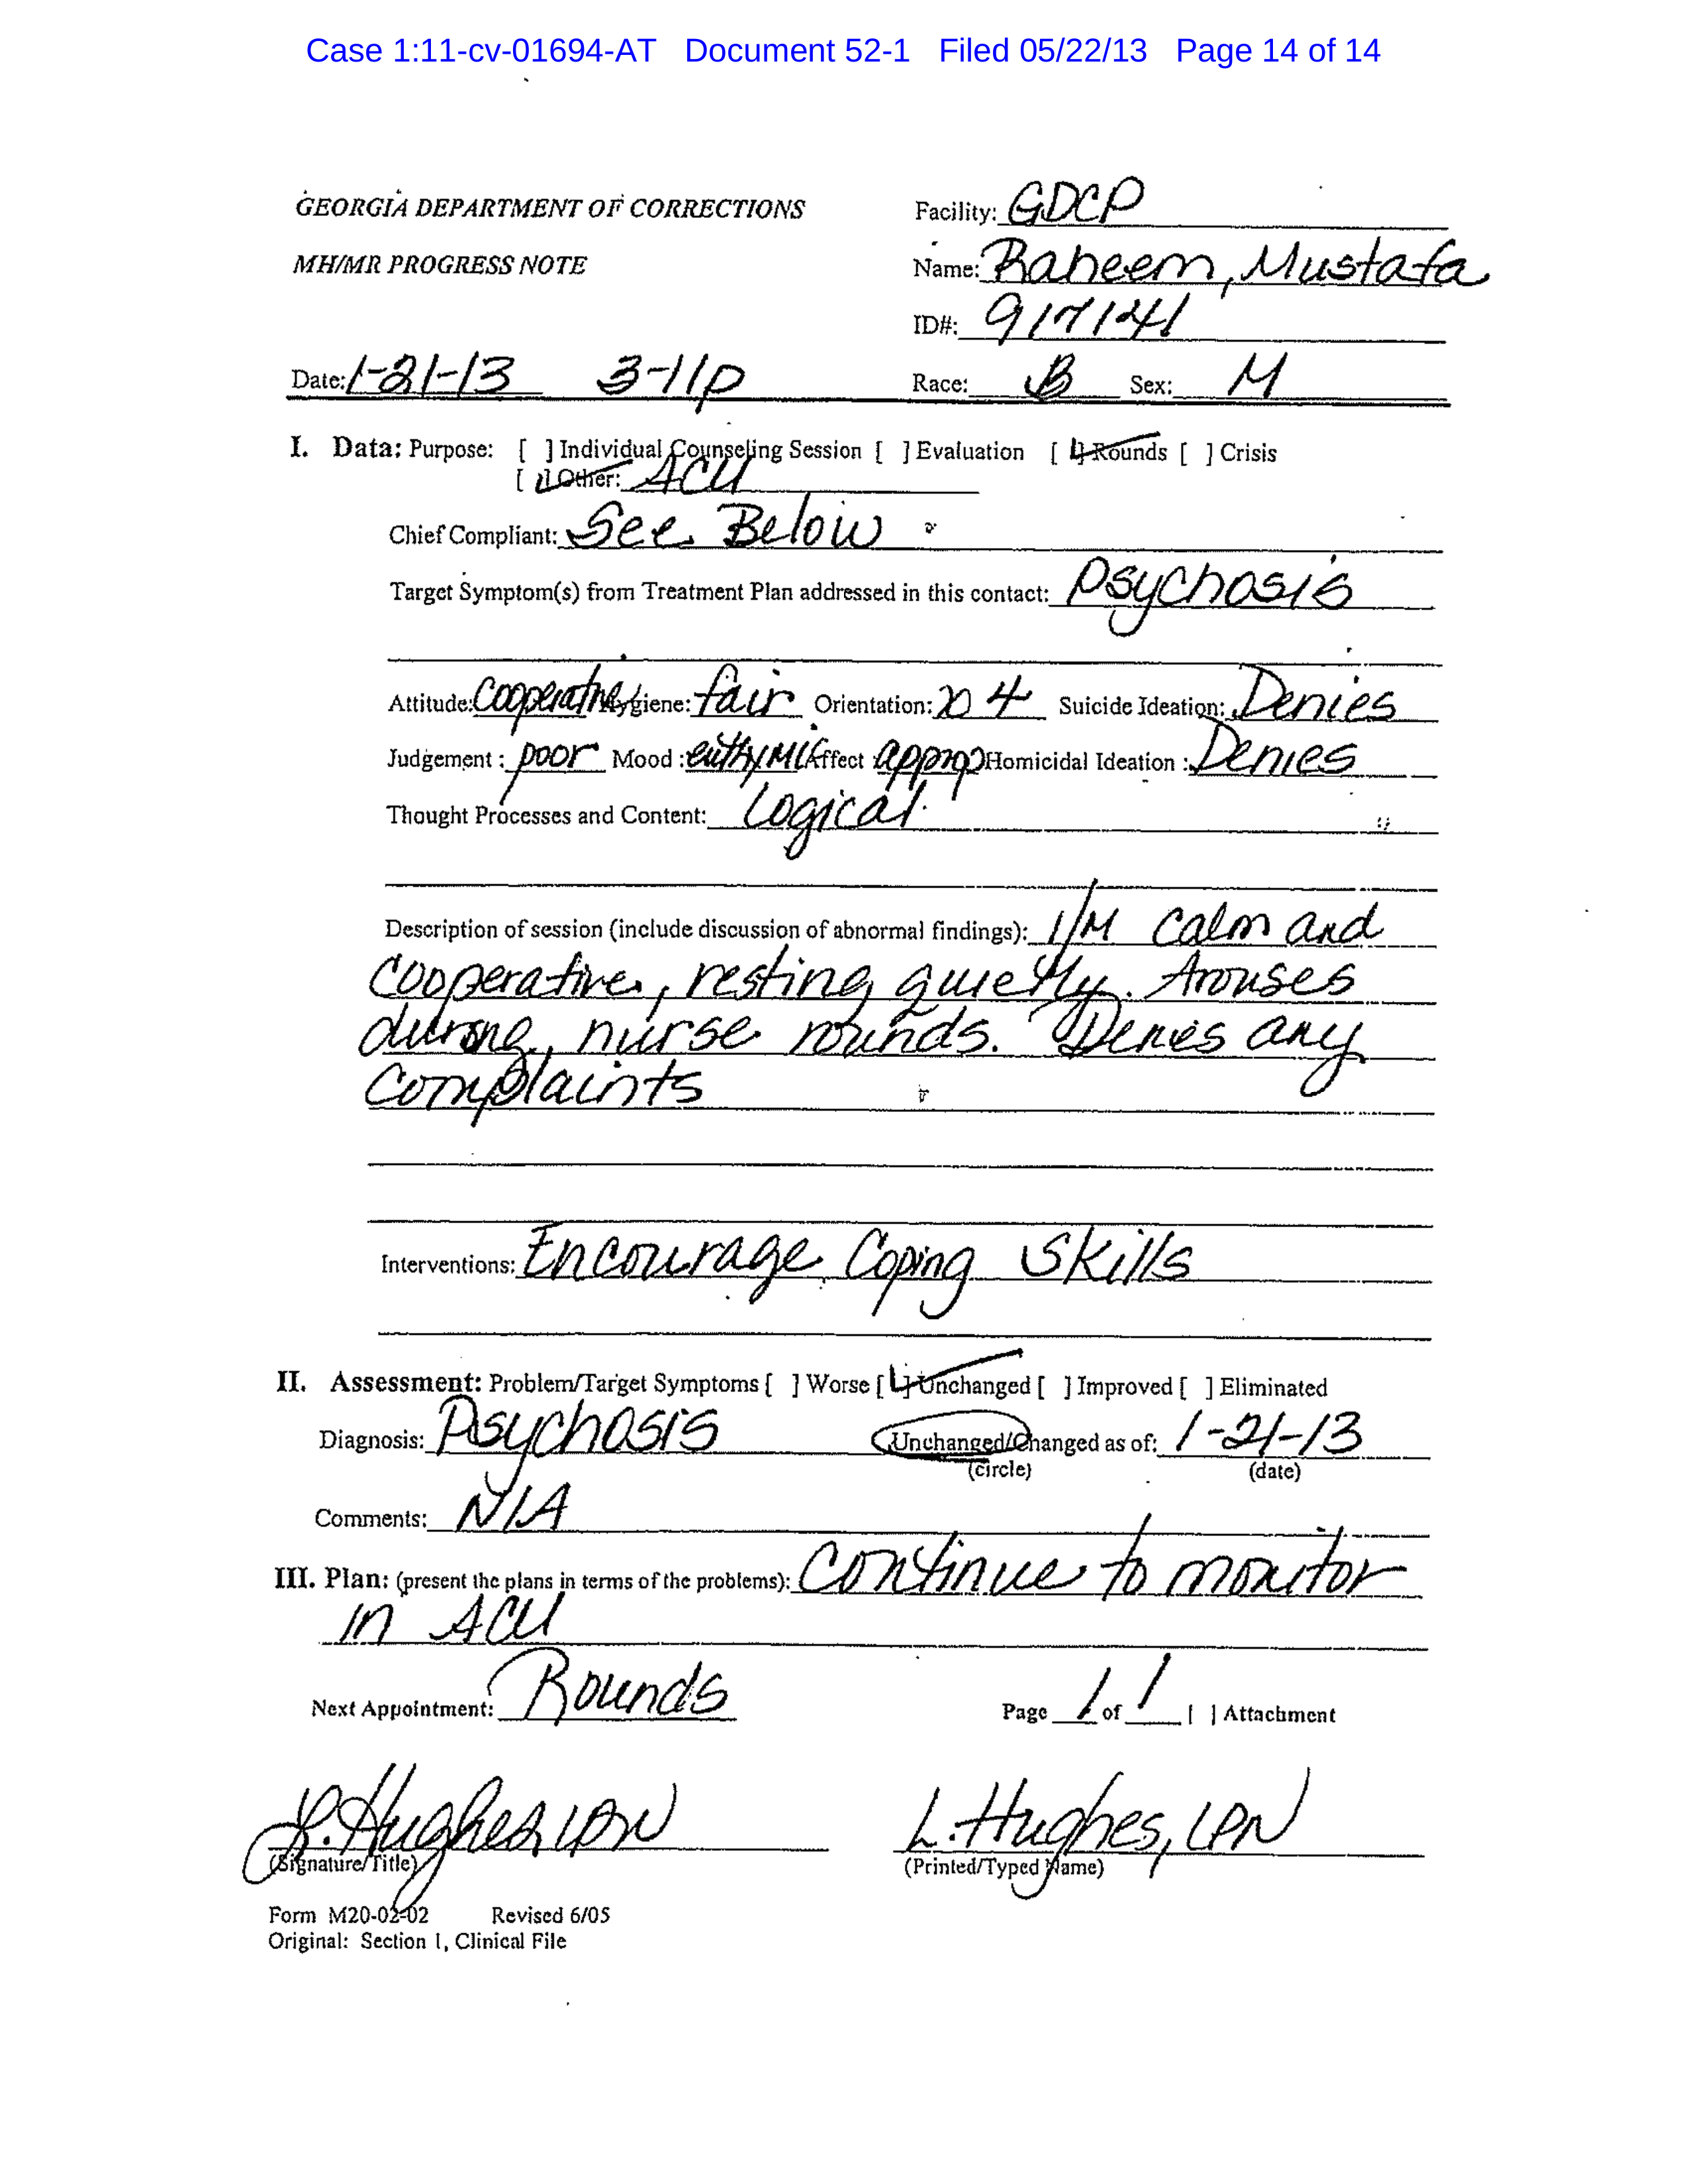 Case 1:11-cv-01694-AT Document 52-1 Filed 05/22/13 Page 14 of 14
GEORGIA DEPARTMENT OF CORRECTIONS Facility: GDCP
MH/MR PROGRESS NOTE Name: Raheem, Mustafa
ID#: 917141
Date: 1-21-13 3-11p Race: B Sex: M
I. Data: Purpose: [ ] Individual Counseling Session [ ] Evaluation [✓] Rounds [ ] Crisis
[✓] Other: ACU
Chief Compliant: See Below
Target Symptom(s) from Treatment Plan addressed in this contact: Psychosis
Attitude: Cooperative Hygiene: fair Orientation: x 4 Suicide Ideation: Denies
Judgement : poor Mood : euthymic Affect : approp Homicidal Ideation : Denies
Thought Processes and Content: Logical
Description of session (include discussion of abnormal findings): I/M Calm and
Cooperative, resting quietly. Arouses
during nurse rounds. Denies any
Complaints
Interventions: Encourage Coping Skills
II. Assessment: Problem/Target Symptoms [ ] Worse [✓] Unchanged [ ] Improved [ ] Eliminated
Diagnosis: Psychosis Unchanged/Changed as of: 1-21-13
(circle) (date)
Comments: N/A
III. Plan: (present the plans in terms of the problems): Continue to monitor
in ACU
Next Appointment: Rounds Page 1 of 1 [ ] Attachment
L. Hughes, LPN L. Hughes, LPN
(Signature/Title) (Printed/Typed Name)
Form M20-02-02 Revised 6/05
Original: Section 1, Clinical File